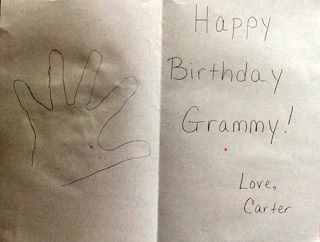 Happy
Birthday
Grammy!
Love,
Carter